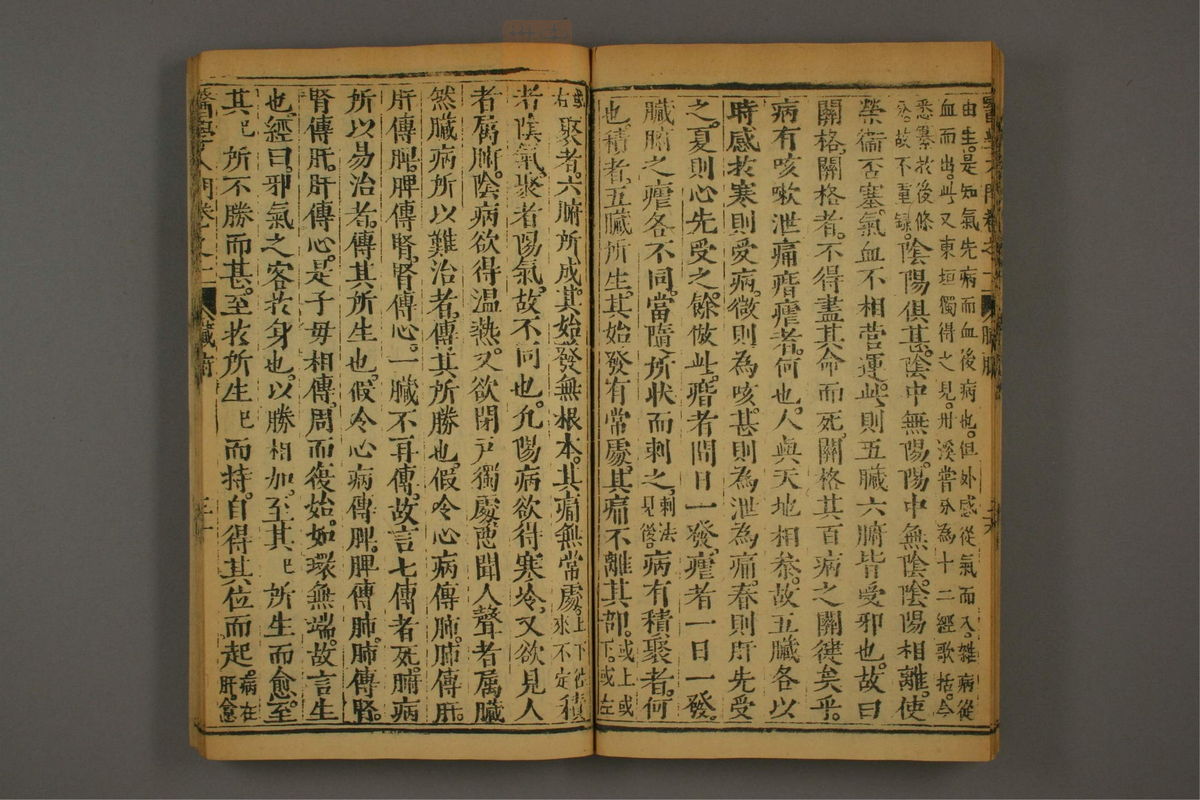 由生。是知氣先病而血後病也。但外感從氣而入。雜病從
血而出。此又東垣獨得之見。丹溪嘗分為十二經歌括。今
悉纂於後條
分故不重錄。陰陽俱甚。陰中無陽。陽中無陰。陰陽相離。使
榮衞否塞。氣血不相營運。此則五臟六腑皆受邪也。故曰
關格。關格者。不得盡其命而死。關格其百病之關鍵矣乎。
病有咳嗽泄痛痎瘧者。何也。人與天地相叅。故五臟各以
時感於寒則受病。微則為咳。甚則為泄為痛。春則肝先受
之。夏則心先受之。餘倣此。痎者間日一發。瘧者一日一發。
臟腑之瘧各不同。當隨所狀而刺之。刺法見後。病有積聚者。何
也。積者。五臟所生。其始發有常處。其痛不離其部。或上或下。或左
或右 聚者。六腑所成。其始發無根本。其痛無常處。上下往來不定 積
者陰氣。聚者陽氣。故不同也。凡陽病欲得寒冷。又欲見人
者屬腑。陰病欲得温熱。又欲閉戸獨處。惡聞人聲者屬臟
然臟病所以難治者。傳其所勝也。假令心病傳肺。肺傳肝。
肝傳脾。脾傳腎。腎傳心。一臟不再傳。故言七傳者死。腑病
所以易治者。傳其所生也。假令心病傳脾。脾傳肺。肺傳腎。
腎傳肝。肝傳心。是子母相傳。周而復始。如環無端。故言生
也。經曰。邪氣之客於身也。以勝相加。至其 已 所生而愈。至
其 已 所不勝而甚。至於所生 已 而持。自得其位而起。病在肝。愈
醫學入門卷之一 臟腑